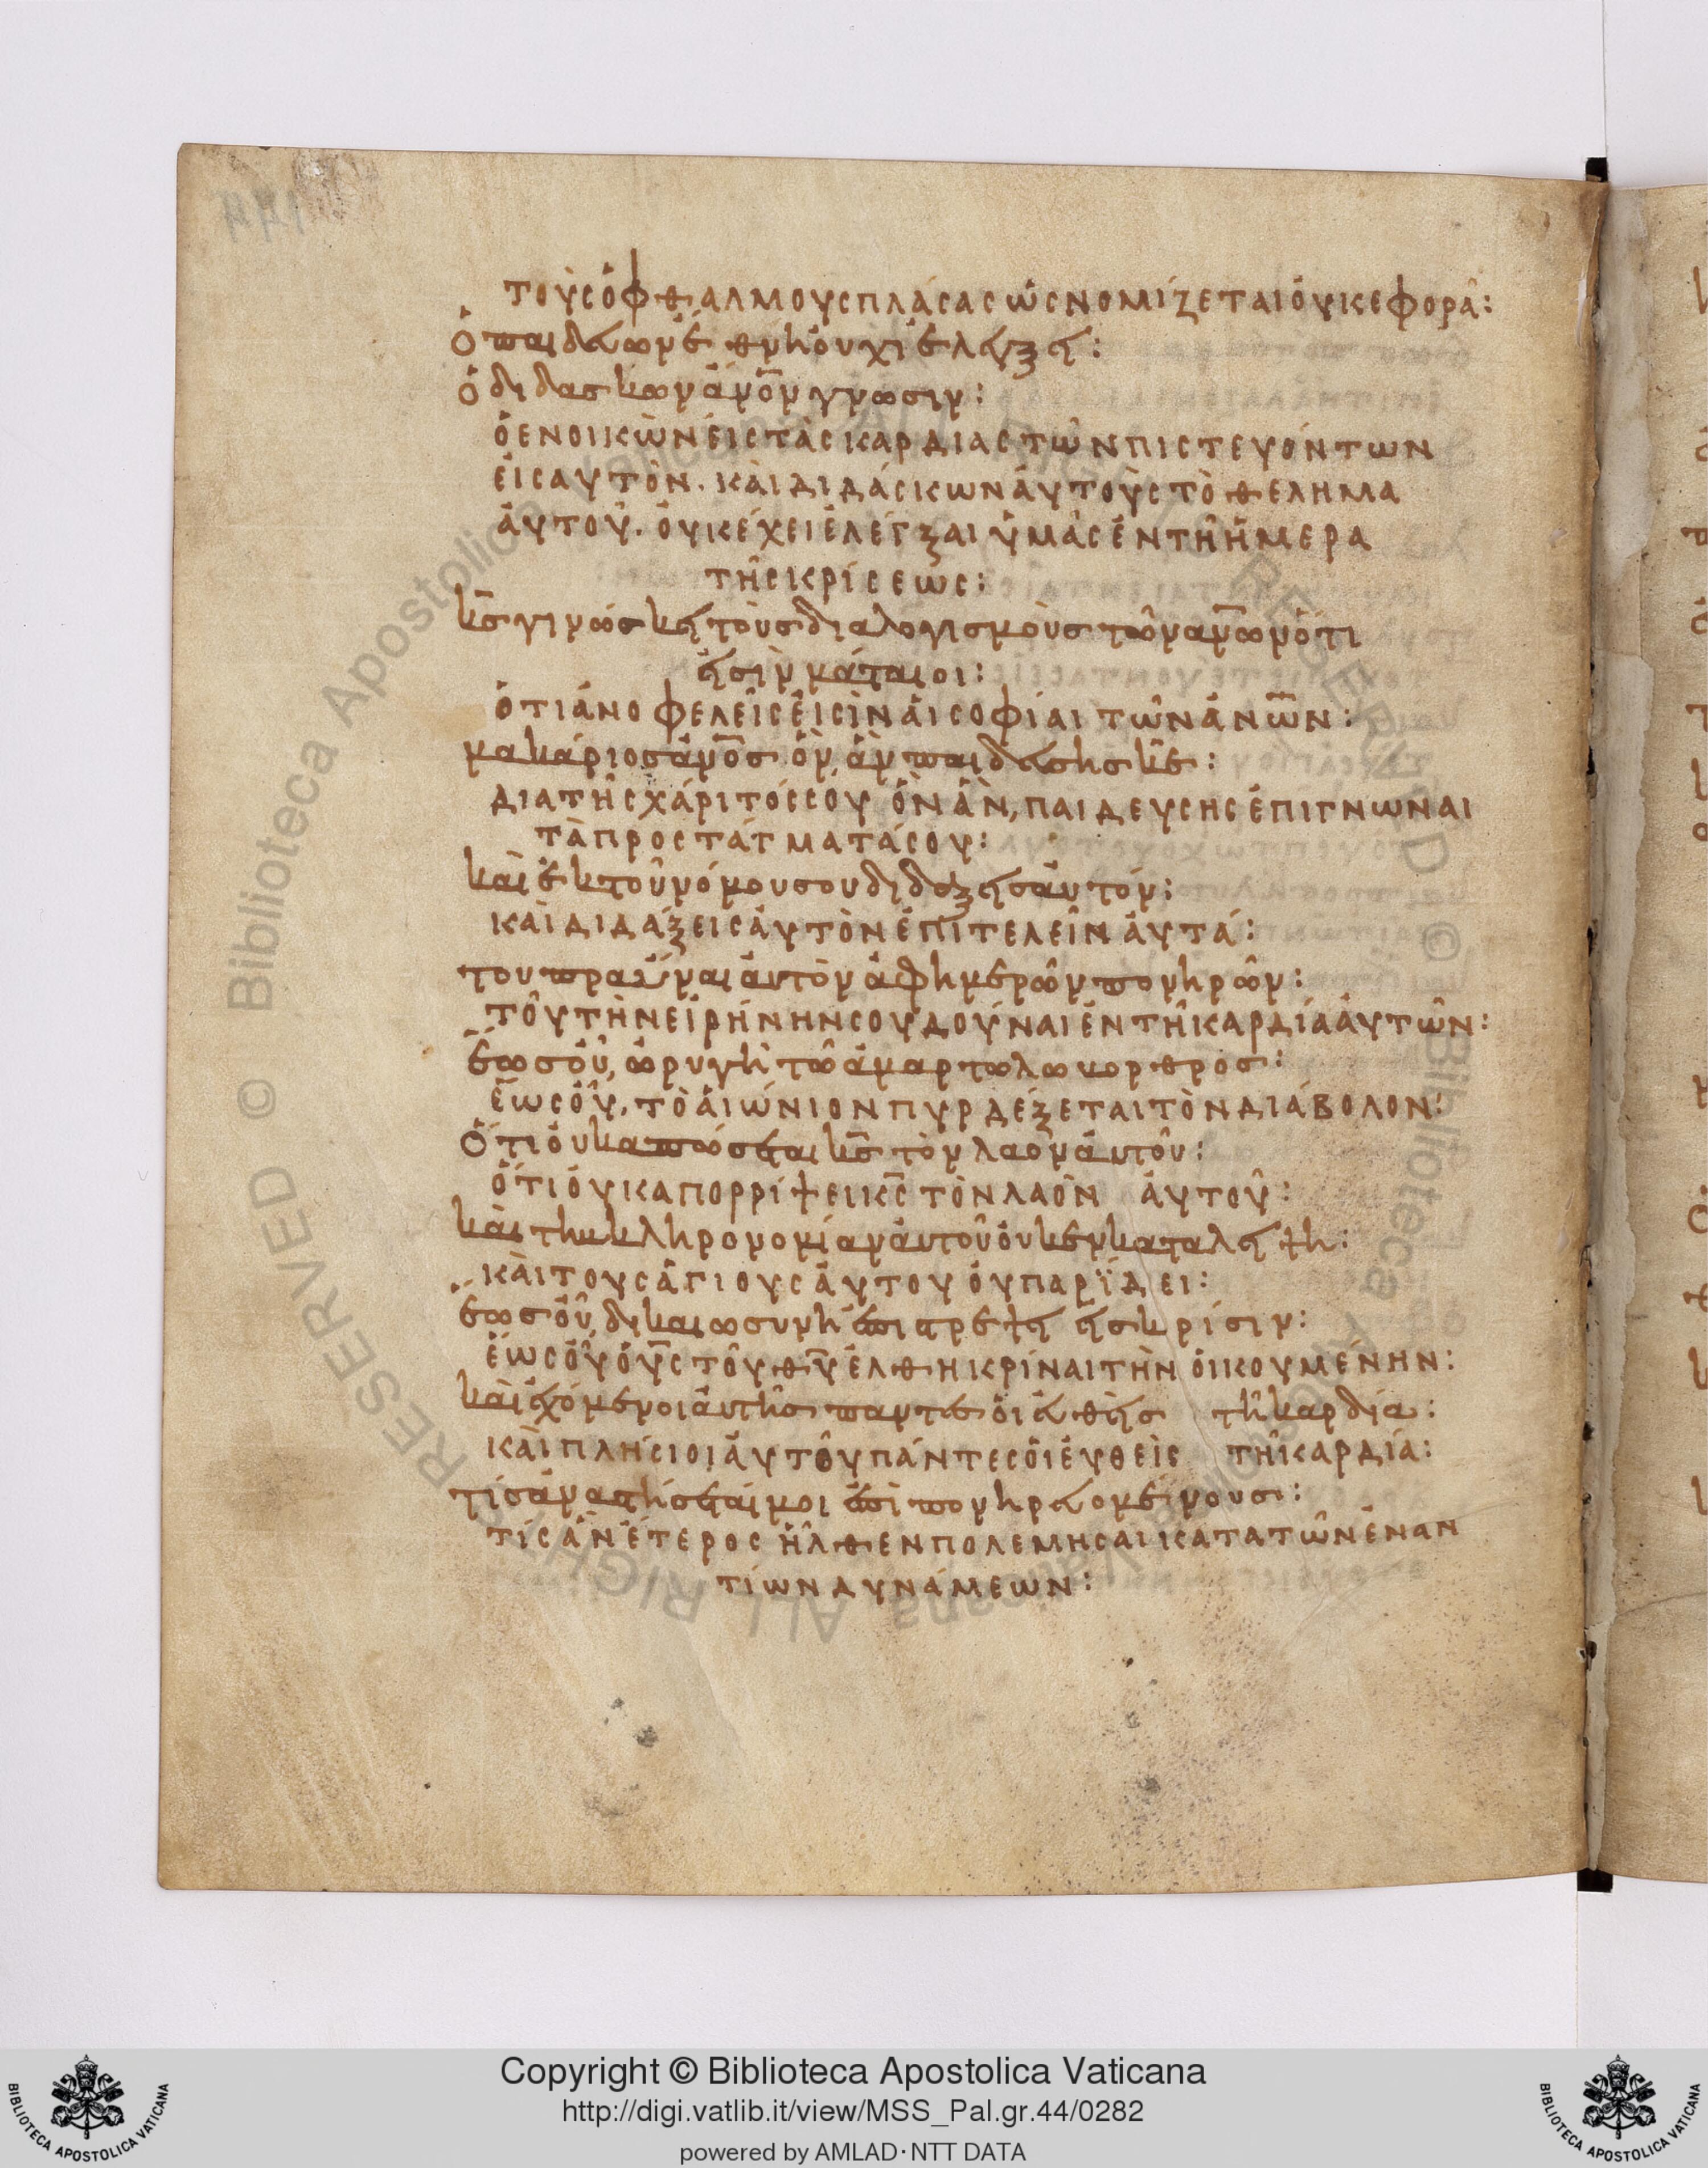 τοὺς ὀφθαλμους πλάσας ὡς νομίζεται ὀυκ εφορᾶ:
Ὁ παιδευων ἔθνη ὀυχὶ ἐλεγξει:
ὁ διδασκων ἄν̅ο̅ν γνωσιν:
ὁ ενοικὼν ἐις τὰς καρδιας τῶν πιστευόντων
ἐις αυτὸν. κὰι διδάσκων ἀυτοὺς τὸ θελημα
ἀυτοῦ. ὀυκ έχει ἐλεγξαι ὑμᾶς ἐν τῆ ἡμερα
τῆς κρίσεως:
κ̅ς̅ γινώσκει τοὺς διαλογισμοὺς τῶν αν̅ων ὁτι
ἐισὶν μάταιοι:
ὁτι ἀνοφελεῖς ἐισὶν ἁι σοφίαι τῶν ἀν̅ω̅ν:
μακάριος ἄν̅ο̅ς ὃν ἂν παιδευσης κ̅ε̅:
δια τῆς χάριτός σου ὃν ἂν, παιδευσης ἐπιγνωναι
τὰ προστάγματά σου:
κὰι ἐκ τοῦ νόμου σου διδαξεις ἀυτόν:
κὰι διδάξεις ἀυτὸν ἐπιτελεῖν ἀυτά:
του πραῢναι ἀυτὸν ἀφ ημερῶν πονηρῶν:
τοῦ τὴν ἐιρήνην σου δοῦναι ἐν τῆ καρδία ἀυτῶν:
ἕως ὁῦ, ὠρυγὴ τῶ ἁμαρτωλω βορθρος:
ἕως ὁῦ. τὸ ἀιώνιον πυρ δέξεται τὸν διάβολον:
Ὅτι ὀυκ απώσεται κ̅ς̅ τὸν λαὸν ἀυτοῦ:
ὅτι ὀυκ απορρίψει κ̅ς̅ τὸν λαὸν ἀυτοῦ:
κὰι την κληρονομίαν ἀυτοῦ ὀυκ ενκαταλειψη:
κὰι τους ἁγιους ἀυτου ὀυ παρΐδει:
ἕως ὁῦ, δικαιωσυνη ἐπιστρεψει ἐις κρίσιν:
ἕως ὁῦ ὁ υ̅ς̅ τοῦ θ̅υ̅ ἐλθη κρίναι τὴν ὀικουμένην:
κὰι ἐχόμενοι ἀυτῆς παντες ὁι ευθὲις τῆ καρδία:
κὰι πλησιοι ἀυτοῦ πάντες ὁι ἐυθεὶς τῆ καρδία:
τίς ἀναστήσεταί μοι ἐπὶ πονηρευομενους:
τίς ἂν ἕτερος ἦλθεν πολεμησαι κατα τῶν ἐναν
τίων δυνάμεων:
Copyright © Biblioteca Apostolica Vaticana
http://digi.vatlib.it/view/MSS_Pal.gr.44/0282
powered by AMLAD·NTT DATA
BIBLIOTECA APOSTOLICA VATICANA
BIBLIOTECA APOSTOLICA VATICANA